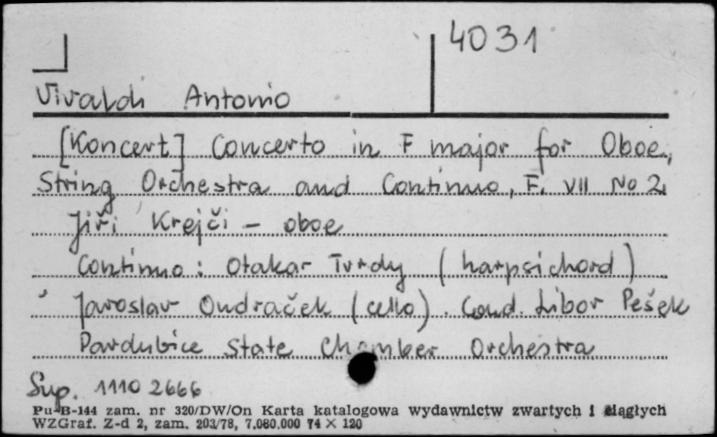 4031
Vivaldi Antonio
[Koncert] Concerto in F major for Oboe,
String Orchestra and Continuo, F. VII No 2
Jiří Krejči – oboe
Continuo: Otakar Tvrdy (harpsichord)
Jaroslav Ondraček (cello). Cond. Libor Pešek
Pardubice State Chamber Orchestra
Sup. 1110 2666
Pu-B-144 zam. nr 320/DW/On Karta katalogowa wydawnictw zwartych i ciągłych
WZGraf. Z-d 2, zam. 203/78, 7.080.000 74 × 120